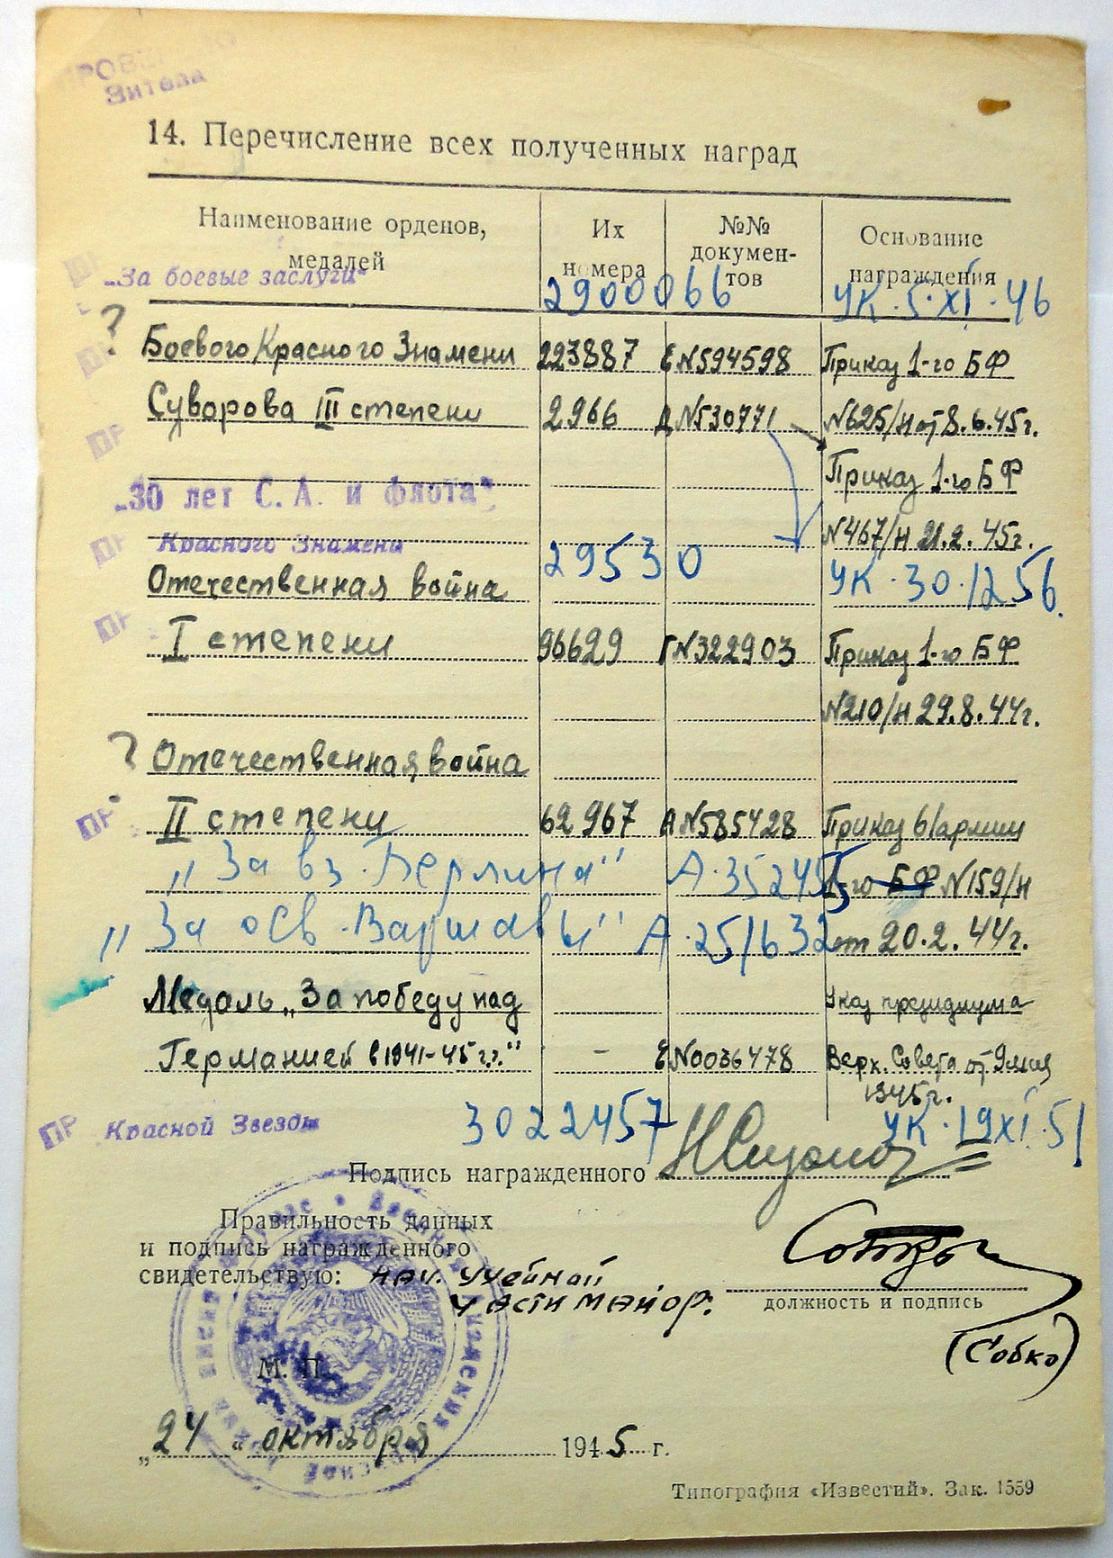 Зитева
14. Перечисление всех полученных наград
Наименование орденов, медалей
Их номера
№№ документов
Основание награждения
„За боевые заслуги" 2900066 УК 5·XI·46
? Боевого Красного Знамени 223887 Е №594598 Приказ 1-го БФ
Суворова III степени 2966 Д №530771 №625/н от 8.6.45г.
Приказ 1-го БФ
„30 лет С. А. и флота"
№467/н 21.2.45г.
Красного Знамени 29530 УК·30·1256.
Отечественная война
I степени 96629 Г №322903 Приказ 1-го БФ
№210/н 29.8.44г.
? Отечественная война
II степени 62967 А №585428 Приказ 61армии
„За вз. Берлина" А·352495 1-го БФ №159/н
„За осв. Варшавы" А·251632 от 20.2.44г.
Медаль „За победу над Указ президиума
Германией в 1941-45 г.г." – Е №0036478 Верх. Совета от 9 мая
1945г.
ПР Красной Звезды 3022457 УК·19XI·51
Подпись награжденного
Правильность данных
и подпись награжденного
свидетельствую: нач. учебной
части майор.
должность и подпись
(Собко)
М. П.
„24" октября 1945 г.
Типография «Известий». Зак. 1559